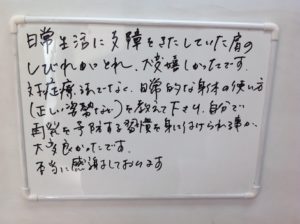 日常生活に支障をきたしていた肩の
しびれがとれ、大変嬉しかったです。
対症療法でなく、日常的な身体の使い方
(正しい姿勢など)を教えて下さり、自分で
再発を予防する習慣を身につけられる事が、
大変良かったです。
本当に感謝しております